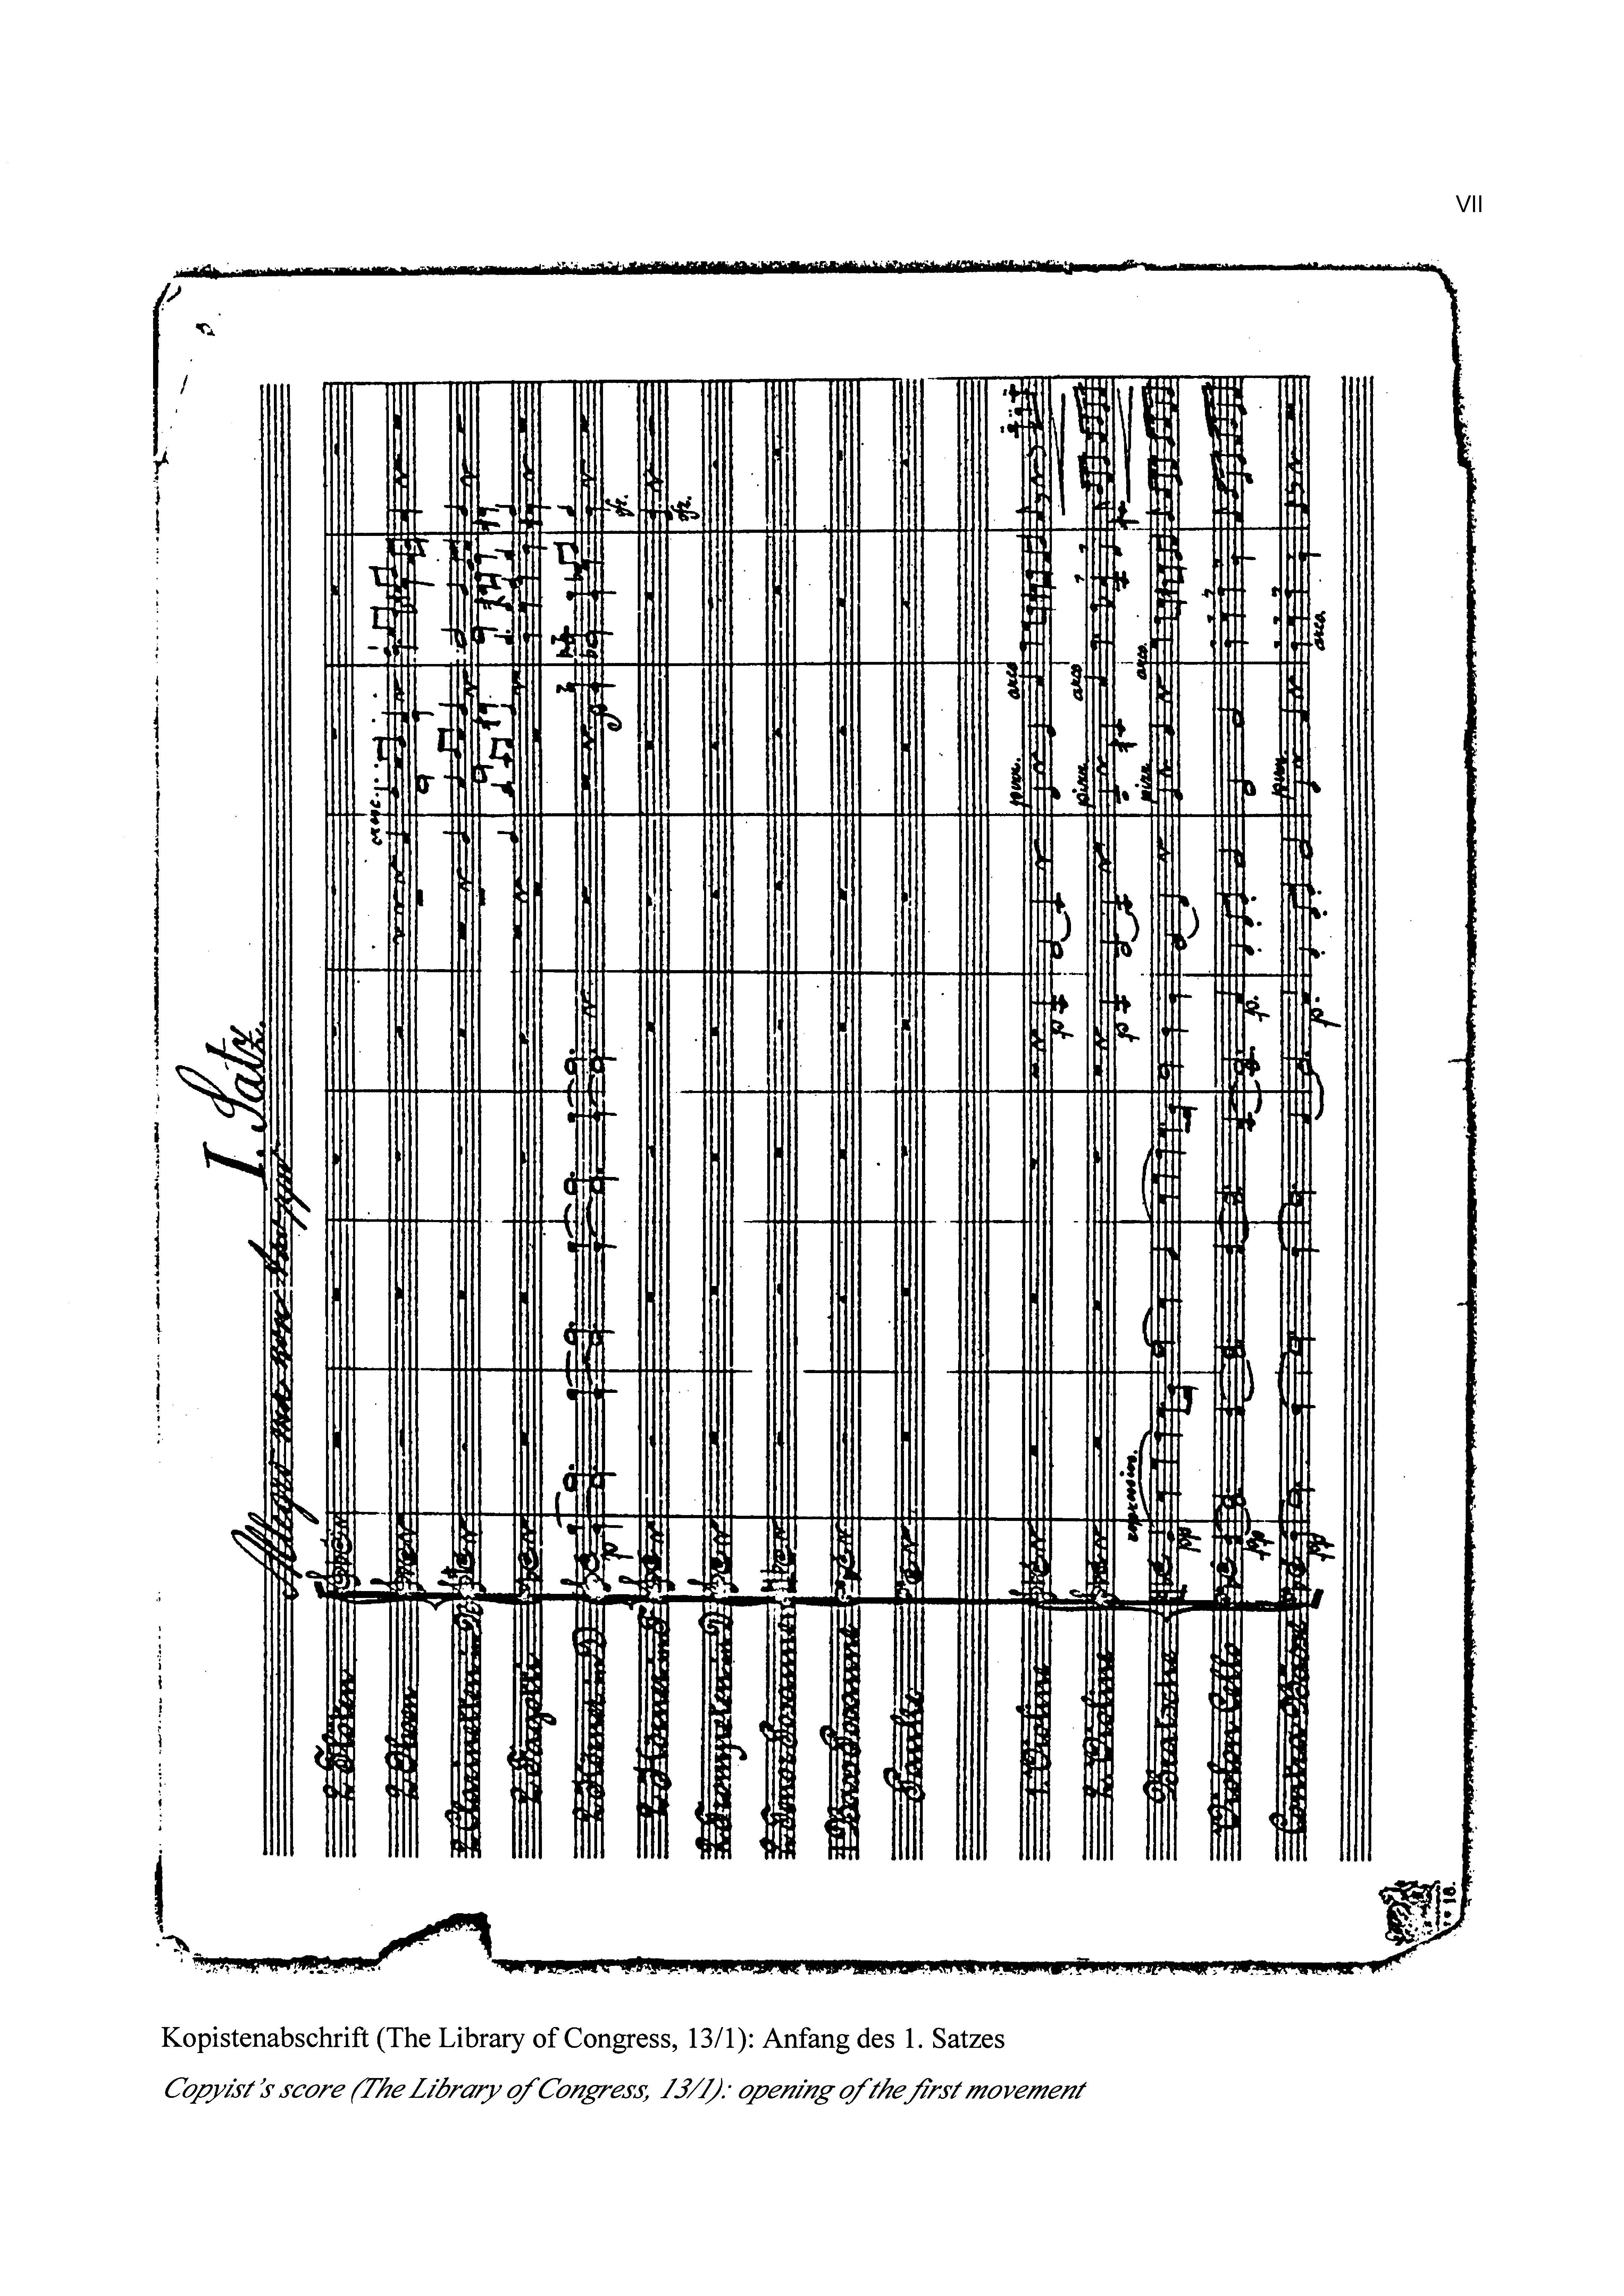 VII
I. Satz.
Allegro ma non troppo
2 Flöten
2 Oboen
2 Clarinetten in B
2 Fagotti
2 Hörner in D
2 Hörner in D
2 Trompeten in D
2 Tenor Posaunen
1 Bass Posaune
Pauke
1. Violine
2. Violine
Bratsche
Violon Cello
Contra Bass
p
pp
pp
pp
espressivo.
p
p
p.
p.
cresc....
pizz.
arco
pizz.
arco
pizz.
arco.
pizz.
arco.
fz.
fz.
18.
Kopistenabschrift (The Library of Congress, 13/1): Anfang des 1. Satzes
Copyist's score (The Library of Congress, 13/1): opening of the first movement